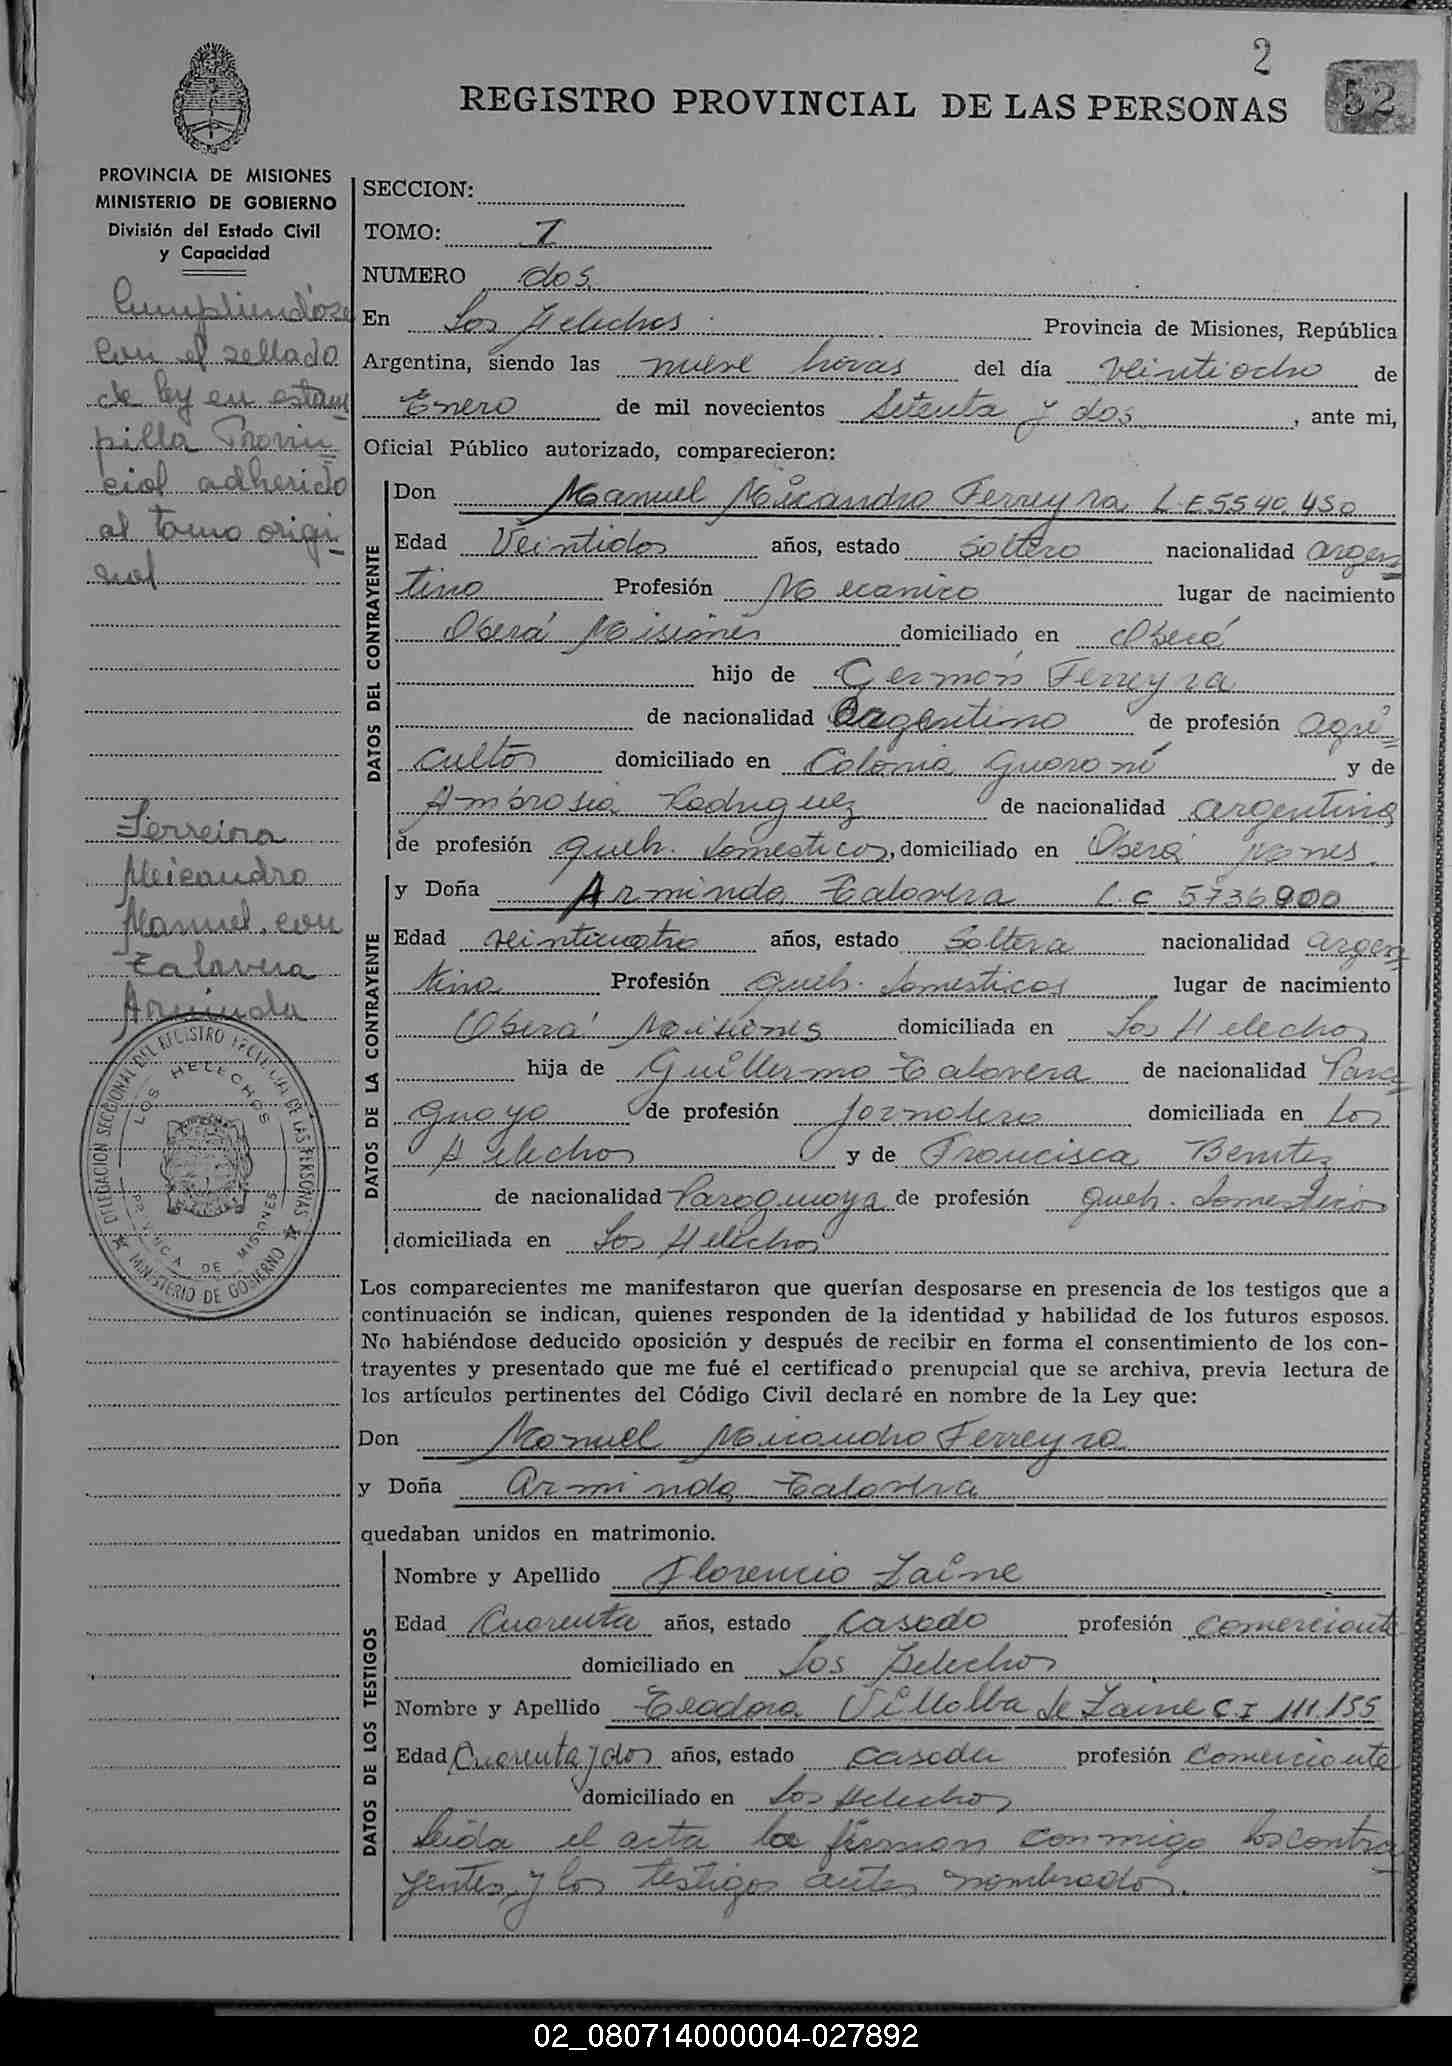 2
52
REGISTRO PROVINCIAL DE LAS PERSONAS
PROVINCIA DE MISIONES
MINISTERIO DE GOBIERNO
División del Estado Civil
y Capacidad
Cumpliendóse
con el sellado
de ley en estam
pilla Provin
cial adherido
al tomo origi
nal
Ferreira
Nicandro
Manuel con
Talavera
Arminda
DELEGACION SECCIONAL DEL REGISTRO PROVINCIAL DE LAS PERSONAS
LOS HELECHOS
PROVINCIA DE MISIONES
MINISTERIO DE GOBIERNO
SECCION:
TOMO: I
NUMERO dos
En Los Helechos Provincia de Misiones, República
Argentina, siendo las nueve horas del día veintiocho de
Enero de mil novecientos setenta y dos, ante mi,
Oficial Público autorizado, comparecieron:
DATOS DEL CONTRAYENTE
Don Manuel Nicandro Ferreyra L.E 5540.450
Edad Veintidos años, estado Soltero nacionalidad argen
tino Profesión Mecanico lugar de nacimiento
Oberá Misiones domiciliado en Oberá
hijo de Germán Ferreyra
de nacionalidad argentino de profesión agri
cultor domiciliado en Colonia Guaraní y de
Ambrosia Rodriguez de nacionalidad argentina
de profesión queh. domesticos, domiciliado en Oberá Mnes.
DATOS DE LA CONTRAYENTE
y Doña Arminda Talavera L.C 5736900
Edad veinticuatro años, estado Soltera nacionalidad argen
tina Profesión queh. domesticos lugar de nacimiento
Oberá Misiones domiciliada en Los Helechos
hija de Guillermo Talavera de nacionalidad Para
guayo de profesión Jornalero domiciliada en Los
Helechos y de Francisca Benitez
de nacionalidad Paraguaya de profesión queh. domesticos
domiciliada en Los Helechos
Los comparecientes me manifestaron que querían desposarse en presencia de los testigos que a
continuación se indican, quienes responden de la identidad y habilidad de los futuros esposos.
No habiéndose deducido oposición y después de recibir en forma el consentimiento de los con-
trayentes y presentado que me fué el certificado prenupcial que se archiva, previa lectura de
los artículos pertinentes del Código Civil declaré en nombre de la Ley que:
Don Manuel Nicandro Ferreyra
y Doña Arminda Talavera
quedaban unidos en matrimonio.
DATOS DE LOS TESTIGOS
Nombre y Apellido Florencio Zaine
Edad Cuarenta años, estado casado profesión comerciante
domiciliado en Los Helechos
Nombre y Apellido Teodora Villalba de Zaine C.I 111.155
Edad Cuarenta y dos años, estado casada profesión comerciante
domiciliado en Los Helechos
Leida el acta la firman conmigo los contra
yentes y los testigos antes nombrados.
02_080714000004-027892